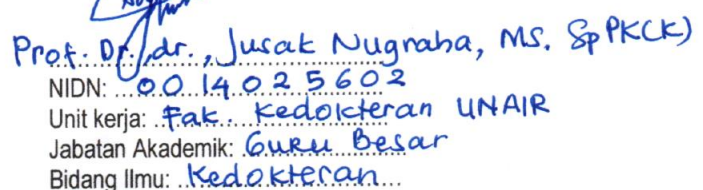 Prof. Dr., dr., Jusak Nugraha, MS. SpPK(K)
NIDN: 0014025602
Unit kerja: Fak. Kedokteran UNAIR
Jabatan Akademik: Guru Besar
Bidang Ilmu: Kedokteran